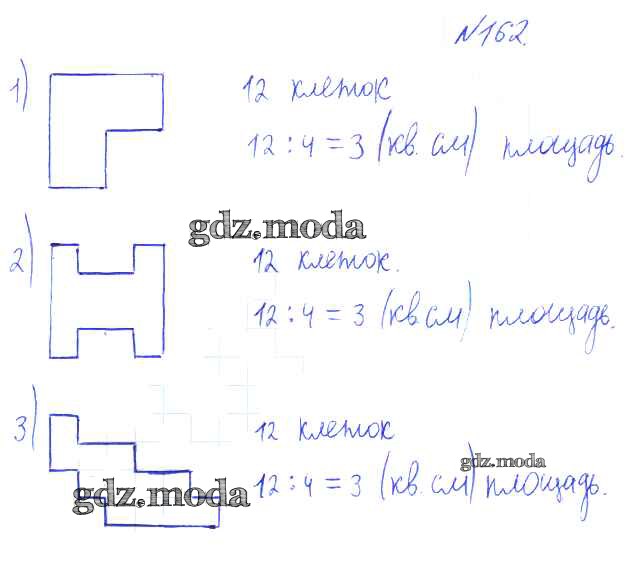 №162.
1) 12 клеток
12 : 4 = 3 (кв. см) площадь.
gdz.moda
2) 12 клеток.
12 : 4 = 3 (кв см) площадь.
3) 12 клеток
gdz.moda
12 : 4 = 3 (кв. см) площадь.
gdz.moda